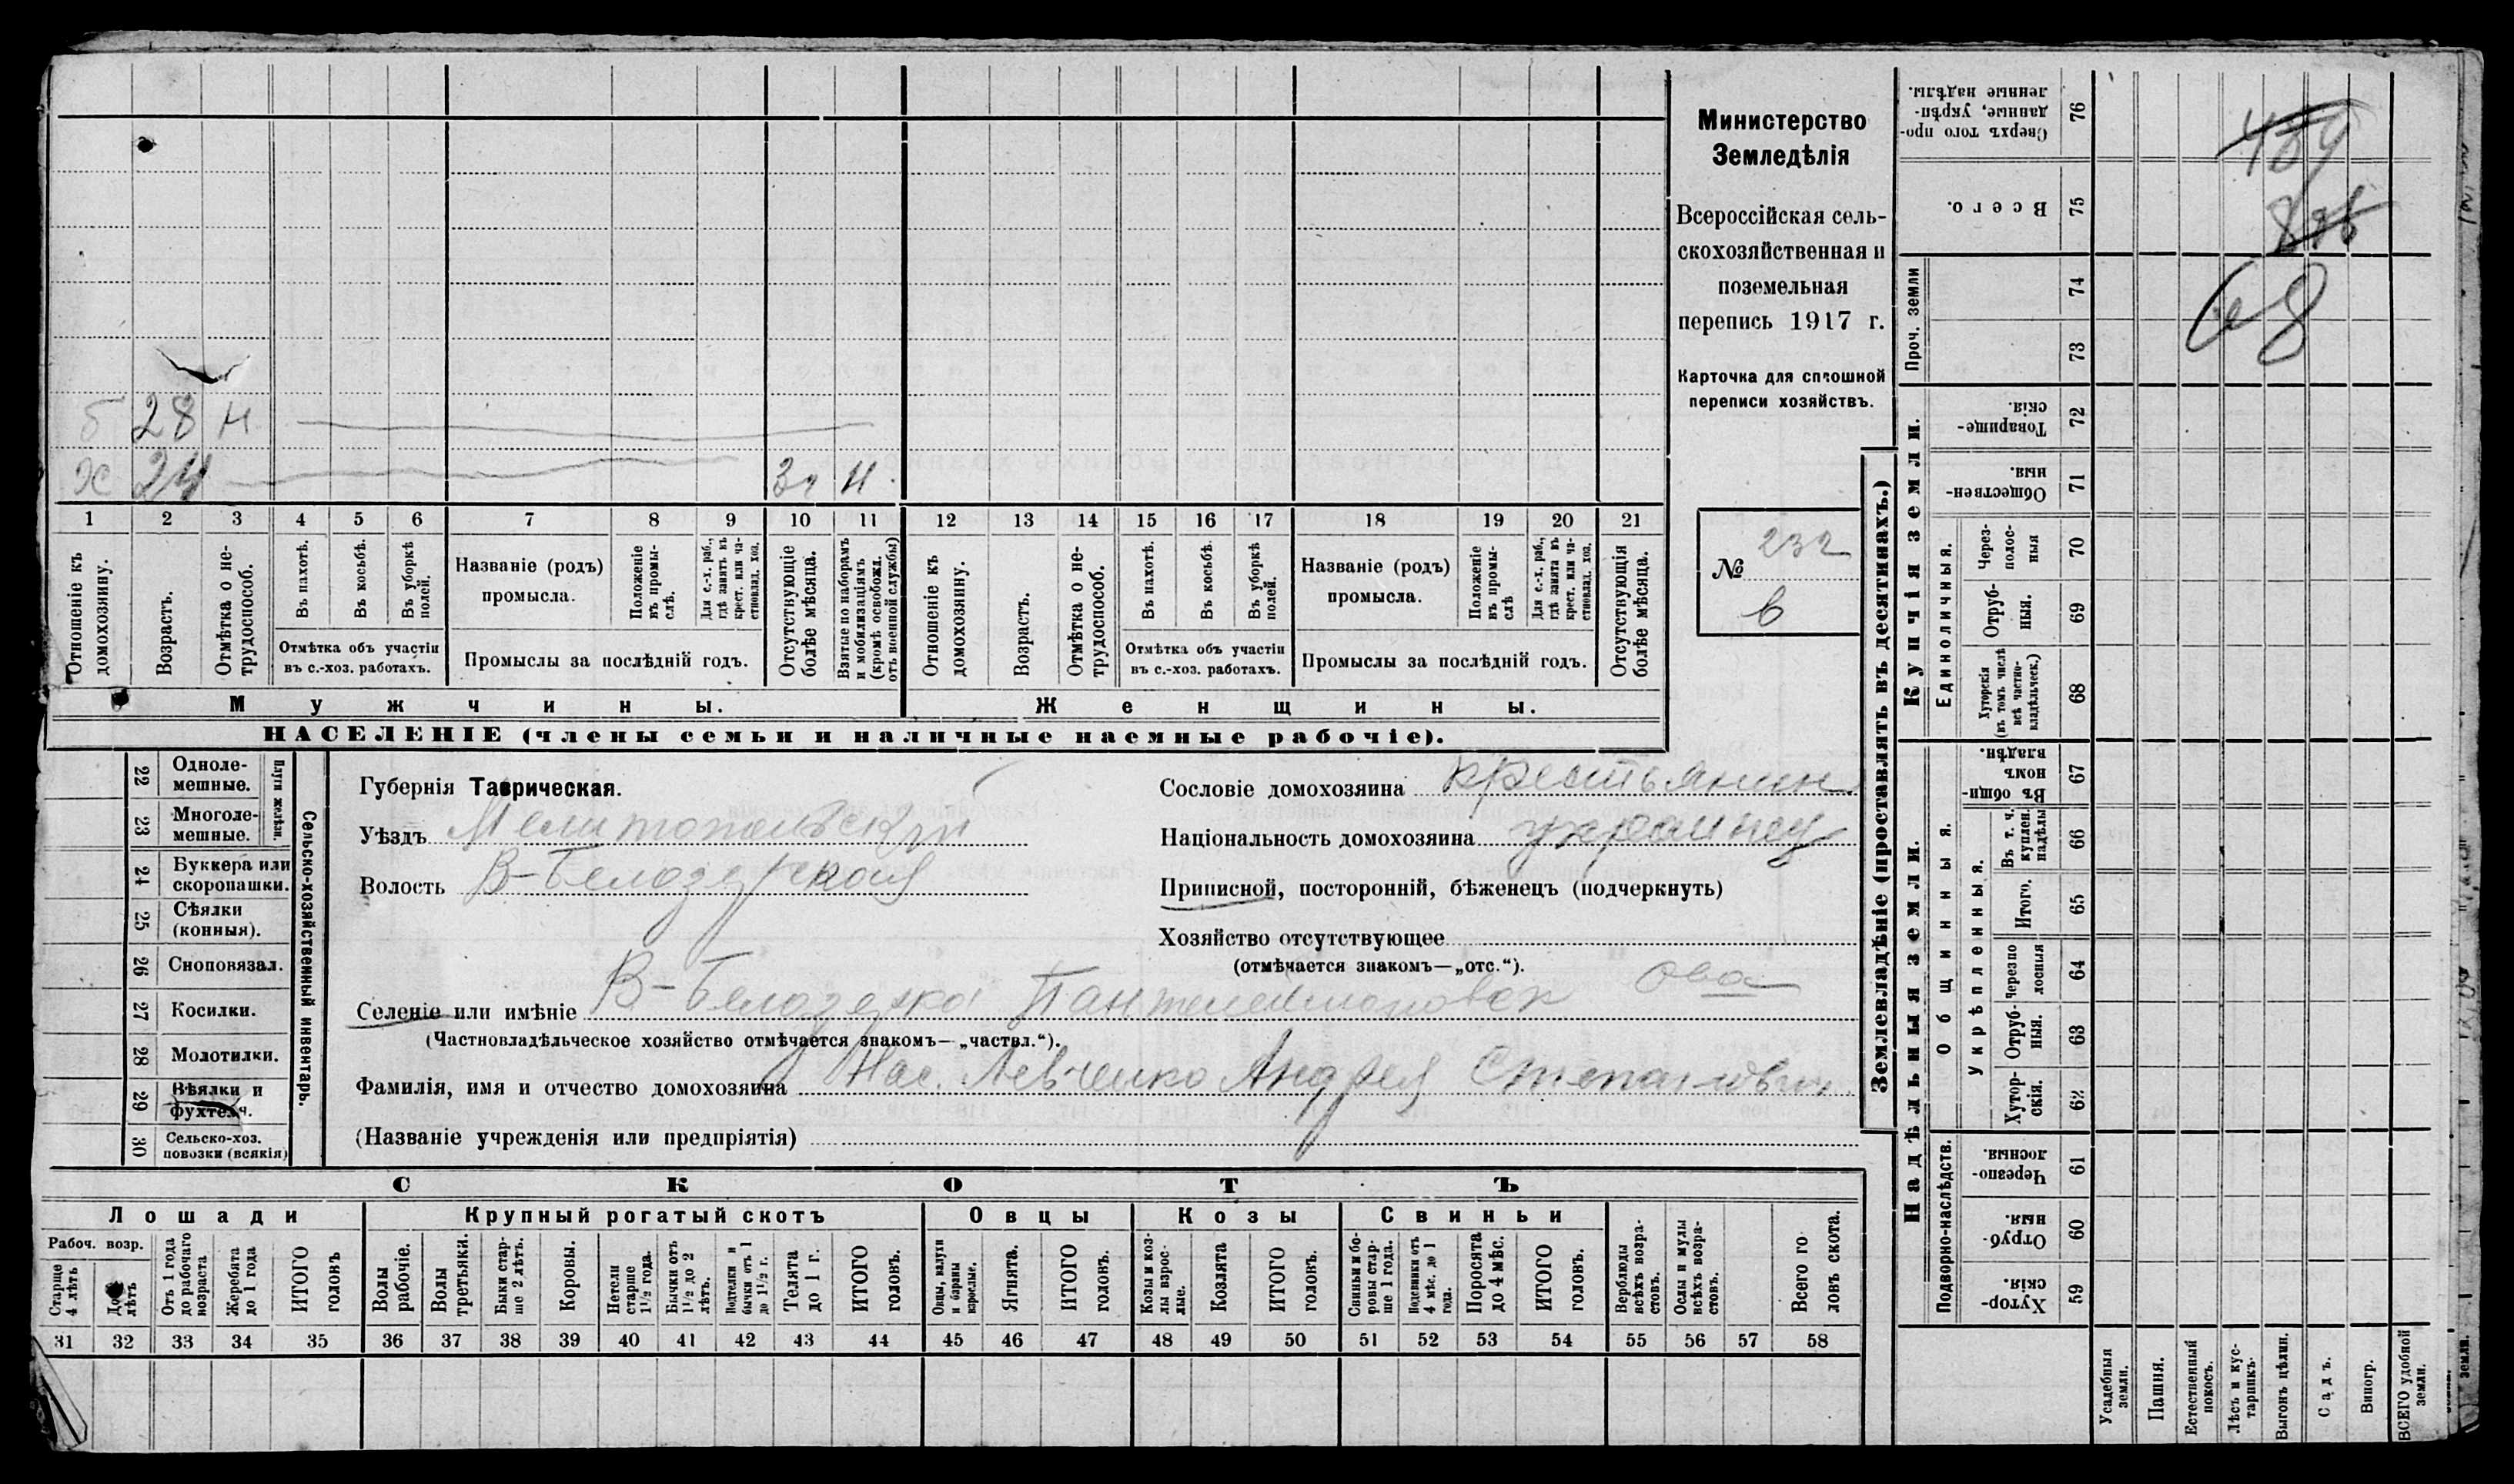 Министерство
Земледѣлія
Всероссійская сель-
скохозяйственная и
поземельная
перепись 1917 г.
Карточка для сплошной
переписи хозяйствъ.
№ 232
6
б 28 н
х 24 н
1 2 3 4 5 6 7 8 9 10 11 12 13 14 15 16 17 18 19 20 21
Отношеніе къ домохозяину.
Возрастъ.
Отмѣтка о не-трудоспособ.
Въ пахотѣ.
Въ косьбѣ.
Въ уборкѣ полей.
Отмѣтка объ участіи
въ с.-хоз. работахъ.
Названіе (родъ)
промысла.
Положеніе въ промы-слѣ.
Для с.-х. раб., гдѣ занятъ въ крест. или ча-стновлад. хоз.
Промыслы за послѣдній годъ.
Отсутствующіе болѣе мѣсяца.
Взятые по наборамъ и мобилизаціямъ (кромѣ освобожд. отъ военной службы)
Отношеніе къ домохозяину.
Возрастъ.
Отмѣтка о не-трудоспособ.
Въ пахотѣ.
Въ косьбѣ.
Въ уборкѣ полей.
Отмѣтка объ участіи
въ с.-хоз. работахъ.
Названіе (родъ)
промысла.
Положеніе въ промы-слѣ
Для с.-х. раб., гдѣ занята въ крест. или ча-стновлад. хоз.
Промыслы за послѣдній годъ.
Отсутствующія болѣе мѣсяца.
Мужчины.
Женщины.
НАСЕЛЕНІЕ (члены семьи и наличные наемные рабочіе).
22 Одноле-мешные.
23 Многоле-мешные.
Плуги желѣзн.
24 Буккера или скоропашки.
25 Сѣялки (конныя).
26 Сноповязал.
27 Косилки.
28 Молотилки.
29 Вѣялки и фухтеля.
30 Сельско-хоз. повозки (всякія)
Сельско-хозяйственный инвентарь.
Губернія Таврическая.
Уѣздъ Мелитопольскій
Волость В-Белозерская
Сословіе домохозяина крестьянин
Національность домохозяина украинец
Приписной, посторонній, бѣженецъ (подчеркнуть)
Хозяйство отсутствующее
(отмѣчается знакомъ—„отс.“).
Селеніе или имѣніе В-Белозерка Пантелеймоновск ова
(Частновладѣльческое хозяйство отмѣчается знакомъ—„частвл.“).
Фамилія, имя и отчество домохозяина Нас. Левченко Андрея Степанович
(Названіе учрежденія или предпріятія)
СКОТЪ
Лошади
Крупный рогатый скотъ
Овцы
Козы
Свиньи
Рабоч. возр.
Старше 4 лѣтъ
До лѣтъ
Отъ 1 года до рабочаго возраста
Жеребята до 1 года
ИТОГО головъ
Волы рабочіе.
Волы третьяки.
Быки стар-ше 2 лѣтъ.
Коровы.
Нетели старше 1½ года.
Бычки отъ 1½ до 2 лѣтъ.
Подтелки и бычки отъ 1 до 1½ г.
Телята до 1 г.
ИТОГО головъ.
Овцы, валухи и бараны взрослые.
Ягнята.
ИТОГО головъ.
Козы и коз-лы взрос-лые.
Козлята
ИТОГО головъ.
Свиньи и бо-ровы стар-ше 1 года.
Подсвинки отъ 4 мѣс. до 1 года.
Поросята до 4 мѣс.
ИТОГО головъ.
Верблюды всѣхъ возра-стовъ.
Ослы и мулы всѣхъ возра-стовъ.
Всего го ловъ скота.
31 32 33 34 35 36 37 38 39 40 41 42 43 44 45 46 47 48 49 50 51 52 53 54 55 56 57 58
Землевладѣніе (проставлять въ десятинахъ.)
Купчія земли.
Надѣльныя земли.
76 Сверхъ того про-данные, укрѣп-ленные надѣлы.
75 Всего.
Проч. земли
74
73
72 Товарище-скія.
71 Обществен-ныя.
Единоличныя.
70 Через-полос-ныя
69 Отруб-ныя.
68 Хуторскія (въ томъ числѣ всѣ частно-владѣльческ.)
Общинныя.
67 Въ общи-номъ владѣн.
укрѣпленныя.
66 Въ т. ч. куплен. надѣлы
65 Итого.
64 Черезпо лосныя
63 Отруб-ныя.
62 Хутор-скія.
Подворно-наслѣдств.
61 Черезпо-лосныя.
60 Отруб-ныя.
59 Хутор-скія.
Усадебныя земли.
Пашня.
Естественный покосъ.
Лѣсъ и кус-тарникъ.
Выгонъ цѣлин.
Садъ.
Виногр.
ВСЕГО удобной земли.
земли.
68